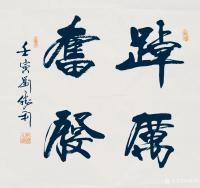 踔厲
奮發
壬寅劉利